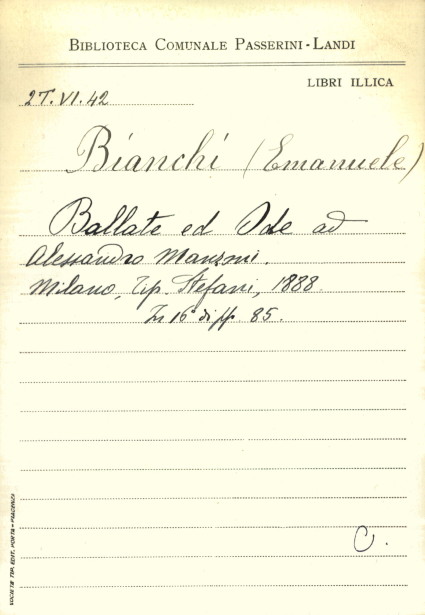 BIBLIOTECA COMUNALE PASSERINI-LANDI
LIBRI ILLICA
2T.VI.42
Bianchi (Emanuele)
Ballate ed Ode ad
Alessandro Manzoni.
Milano, Tip. Stefani, 1888
In 16° di pp. 85.
C.
SOCIETÀ TIP. EDIT. PORTA - PIACENZA